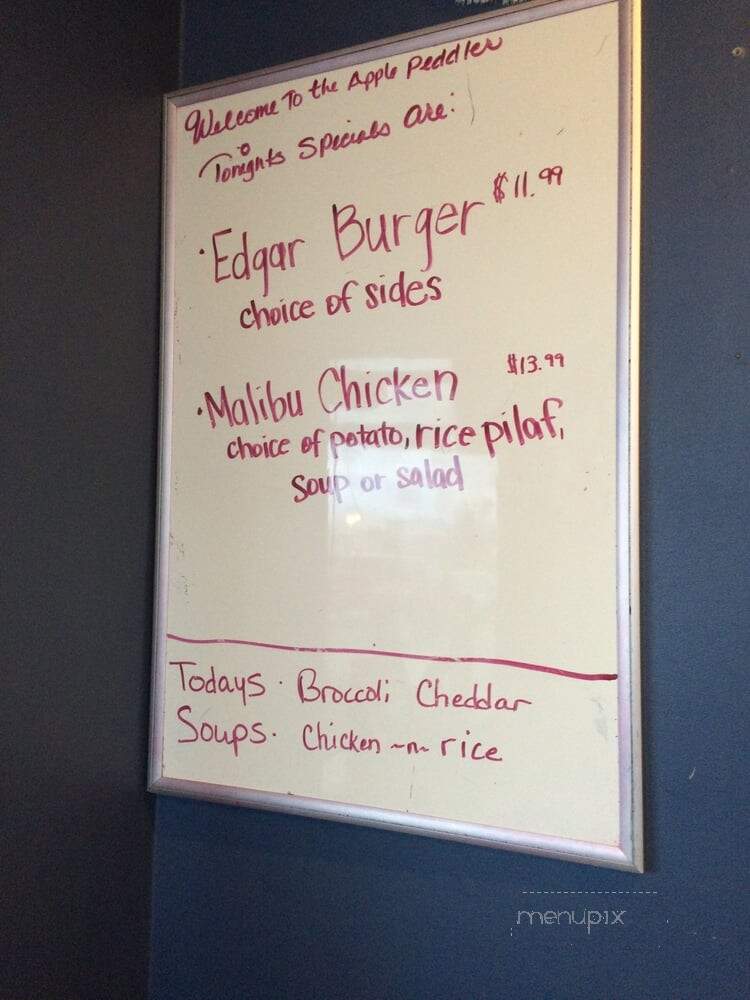 Welcome To the Apple Peddler
Tonights Specials Are:
· Edgar Burger $11.99
choice of sides
· Malibu Chicken $13.99
choice of potato, rice pilaf,
soup or salad
Todays · Broccoli Cheddar
Soups · Chicken ~n~ rice
menupix